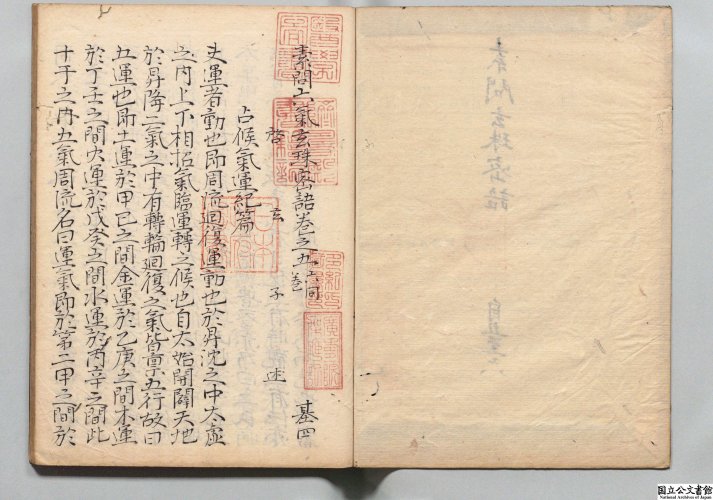 素問六氣玄珠密語巻之五 六同巻 基四
啓玄子述
占候氣運紀篇
夫運者動也即周流迴復運動也於昇沈之中太虛
之内上下相招氣臨運轉之候也自太始開闢天地
於昇降二氣之中有轉輪迴復之氣皆禀五行故曰
五運也即土運於甲己之間金運於乙庚之間木運
於丁壬之間火運於戊癸之間水運於丙辛之間此
十干之内五氣周流名曰運氣即於第二甲之間於
素問玄珠密語
国立公文書館
National Archives of Japan